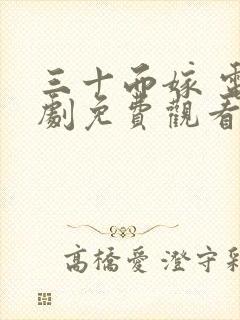 三十而嫁 電
劇免費觀看
高橋愛 澄守彩